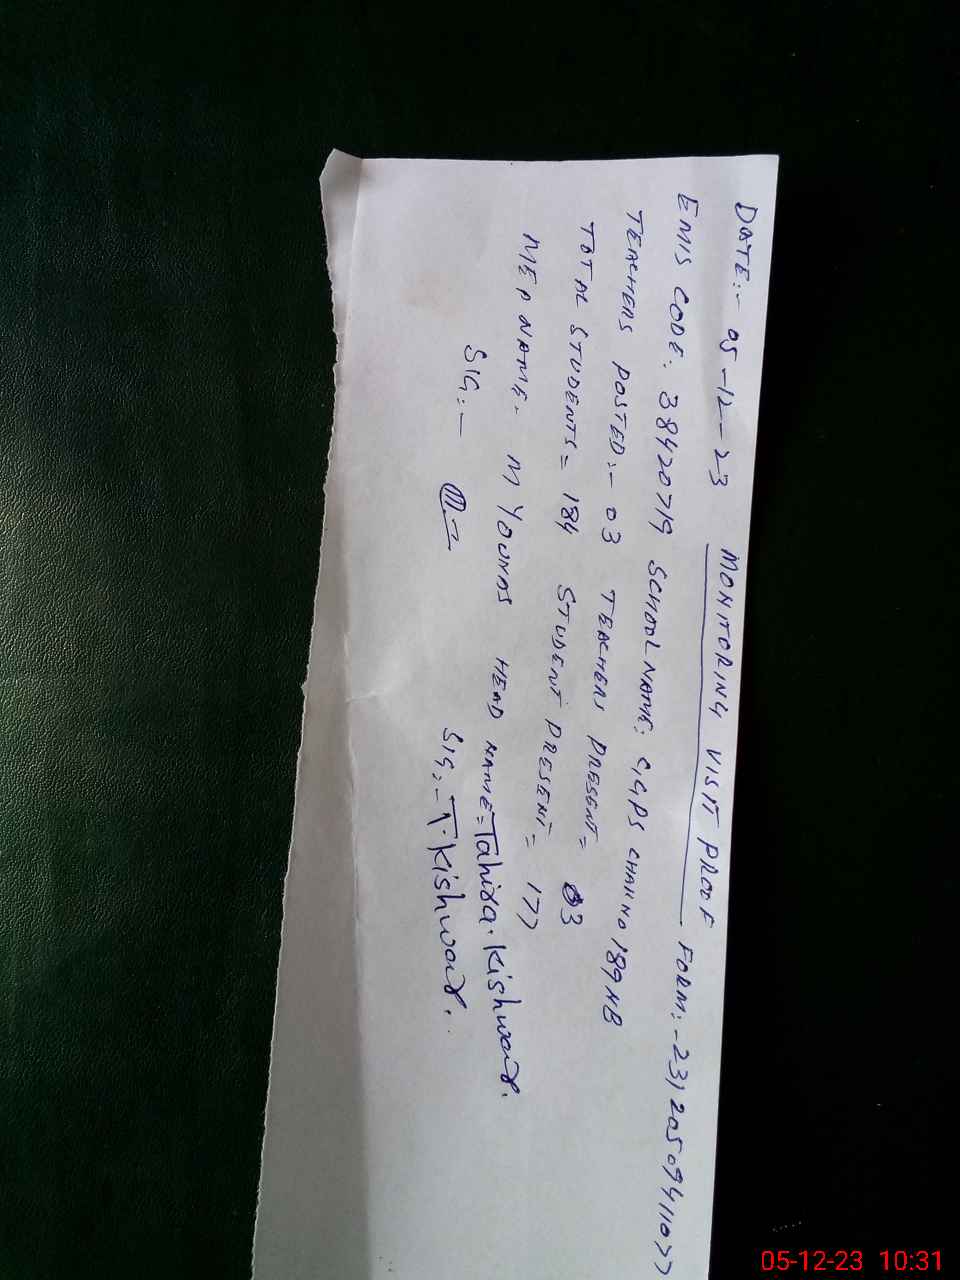 DATE:- 05-12-23 MONITORING VISIT PROOF FORM:-23120509411077
EMIS CODE. 38420719 SCHOOL NAME: GGPS CHAK NO 189 NB
TEACHERS POSTED:- 03 TEACHERS PRESENT= 03
TOTAL STUDENTS= 184 STUDENT PRESENT= 177
MEA NAME- M YOUNAS HEAD NAME=Tahira.Kishwar.
SIG:- SIG:-T.Kishwar..
05-12-23 10:31